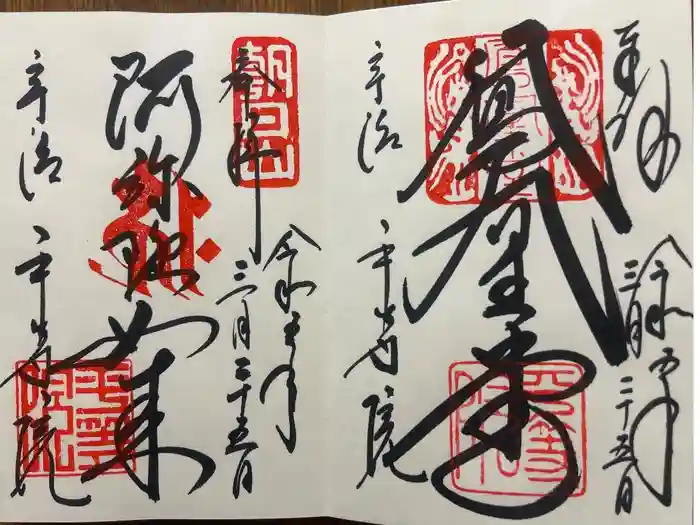 奉拝
令和五年
三月二十五日
鳳凰堂
宇治
平等院
朝日山
奉拝
令和五年
三月二十五日
阿弥陀如来
宇治
平等院